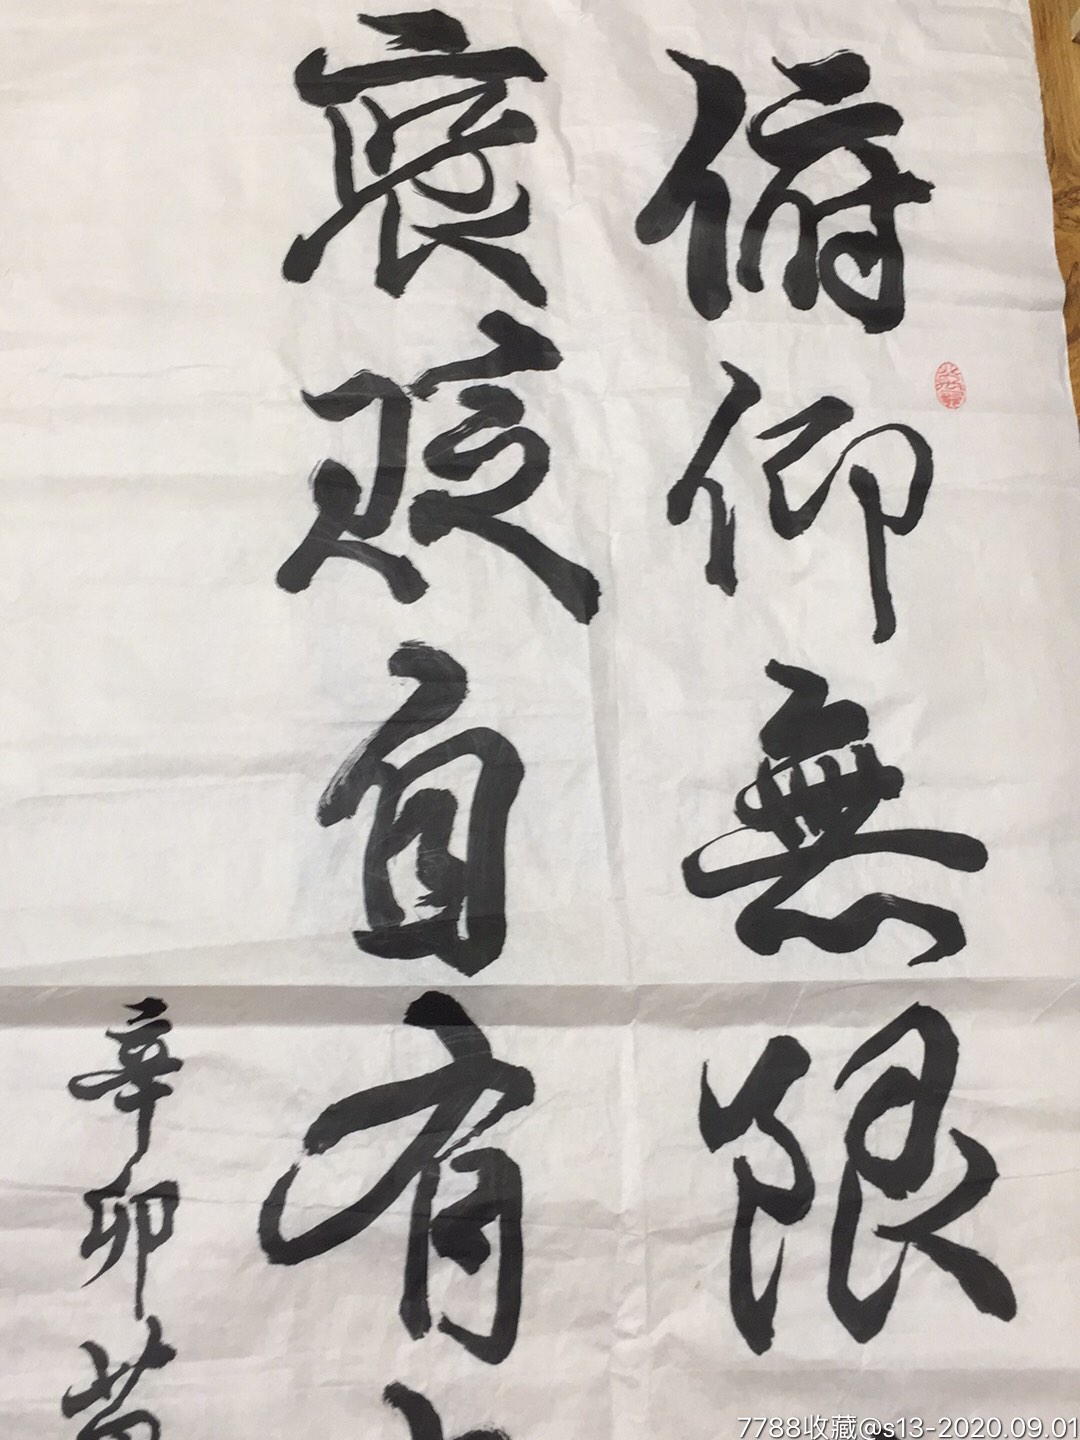 俯仰無限
褒貶自有
辛卯
7788收藏@s13-2020.09.01